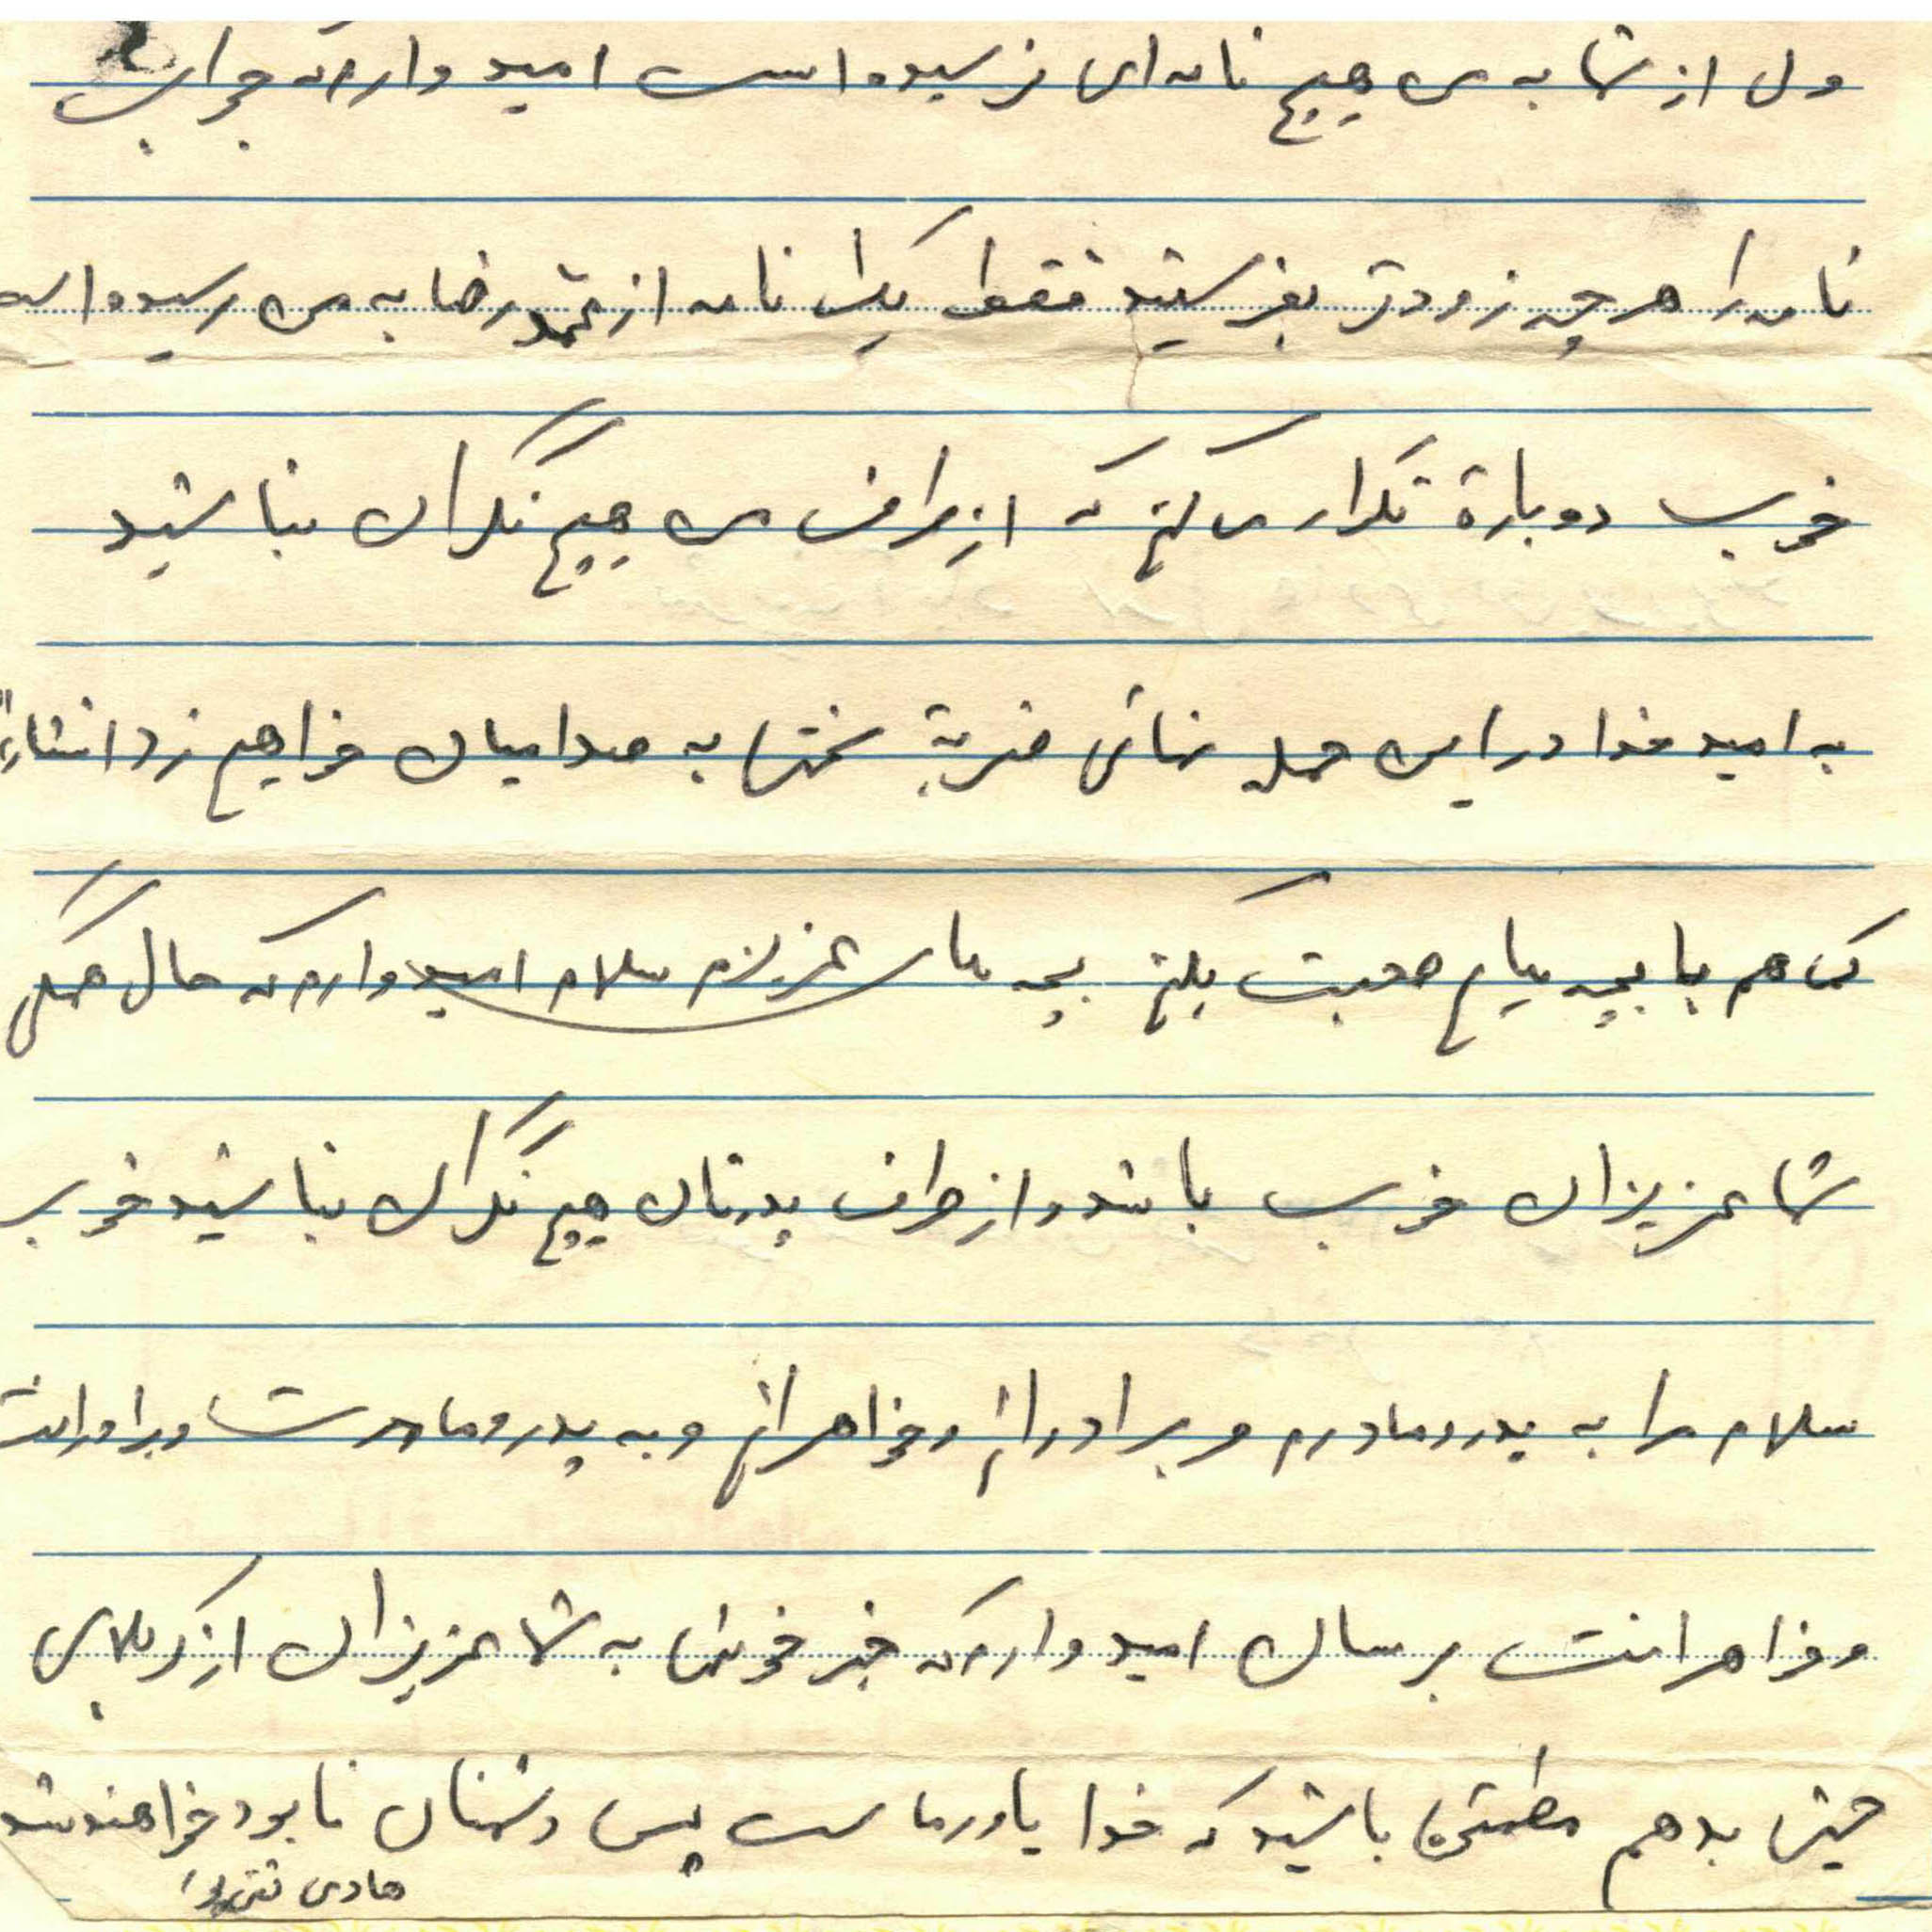 ولی از شما به من هیچ نامه ای نرسیده است امید وارم که جواب
نامه را هر چه زودتر بفرستید فقط یک نامه از محمد رضا به من رسیده است
خوب دوباره تکرار می کنم که از طرف من هیچ نگران نباشید
به امید خدا در این حمله نهائی ضربهٔ سختی به صدامیان خواهیم زد انشاءا
کمی هم با بچه هایم صحبت بکنم بچه های عزیزم سلام امیدوارم که حال همگی
شما عزیزان خوب باشد و از طرف پدرتان هیچ نگران نباشید خوب
سلام مرا به پدر و مادرم و برادرانم و خواهرانم و به پدر و مادرت و برادرانت
و خواهرانت برسان امید وارم که خبر خوشی به شما عزیزان از کربلای
حسینی بدهم مطمئن باشید که خدا یاور ماست پس دشمنان نابود خواهند شد
هادی